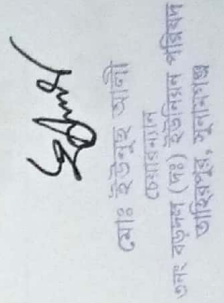 মোঃ ইউনুছ আলী
চেয়ারম্যান
৩নং বড়দল (দঃ) ইউনিয়ন পরিষদ
তাহিরপুর, সুনামগঞ্জ